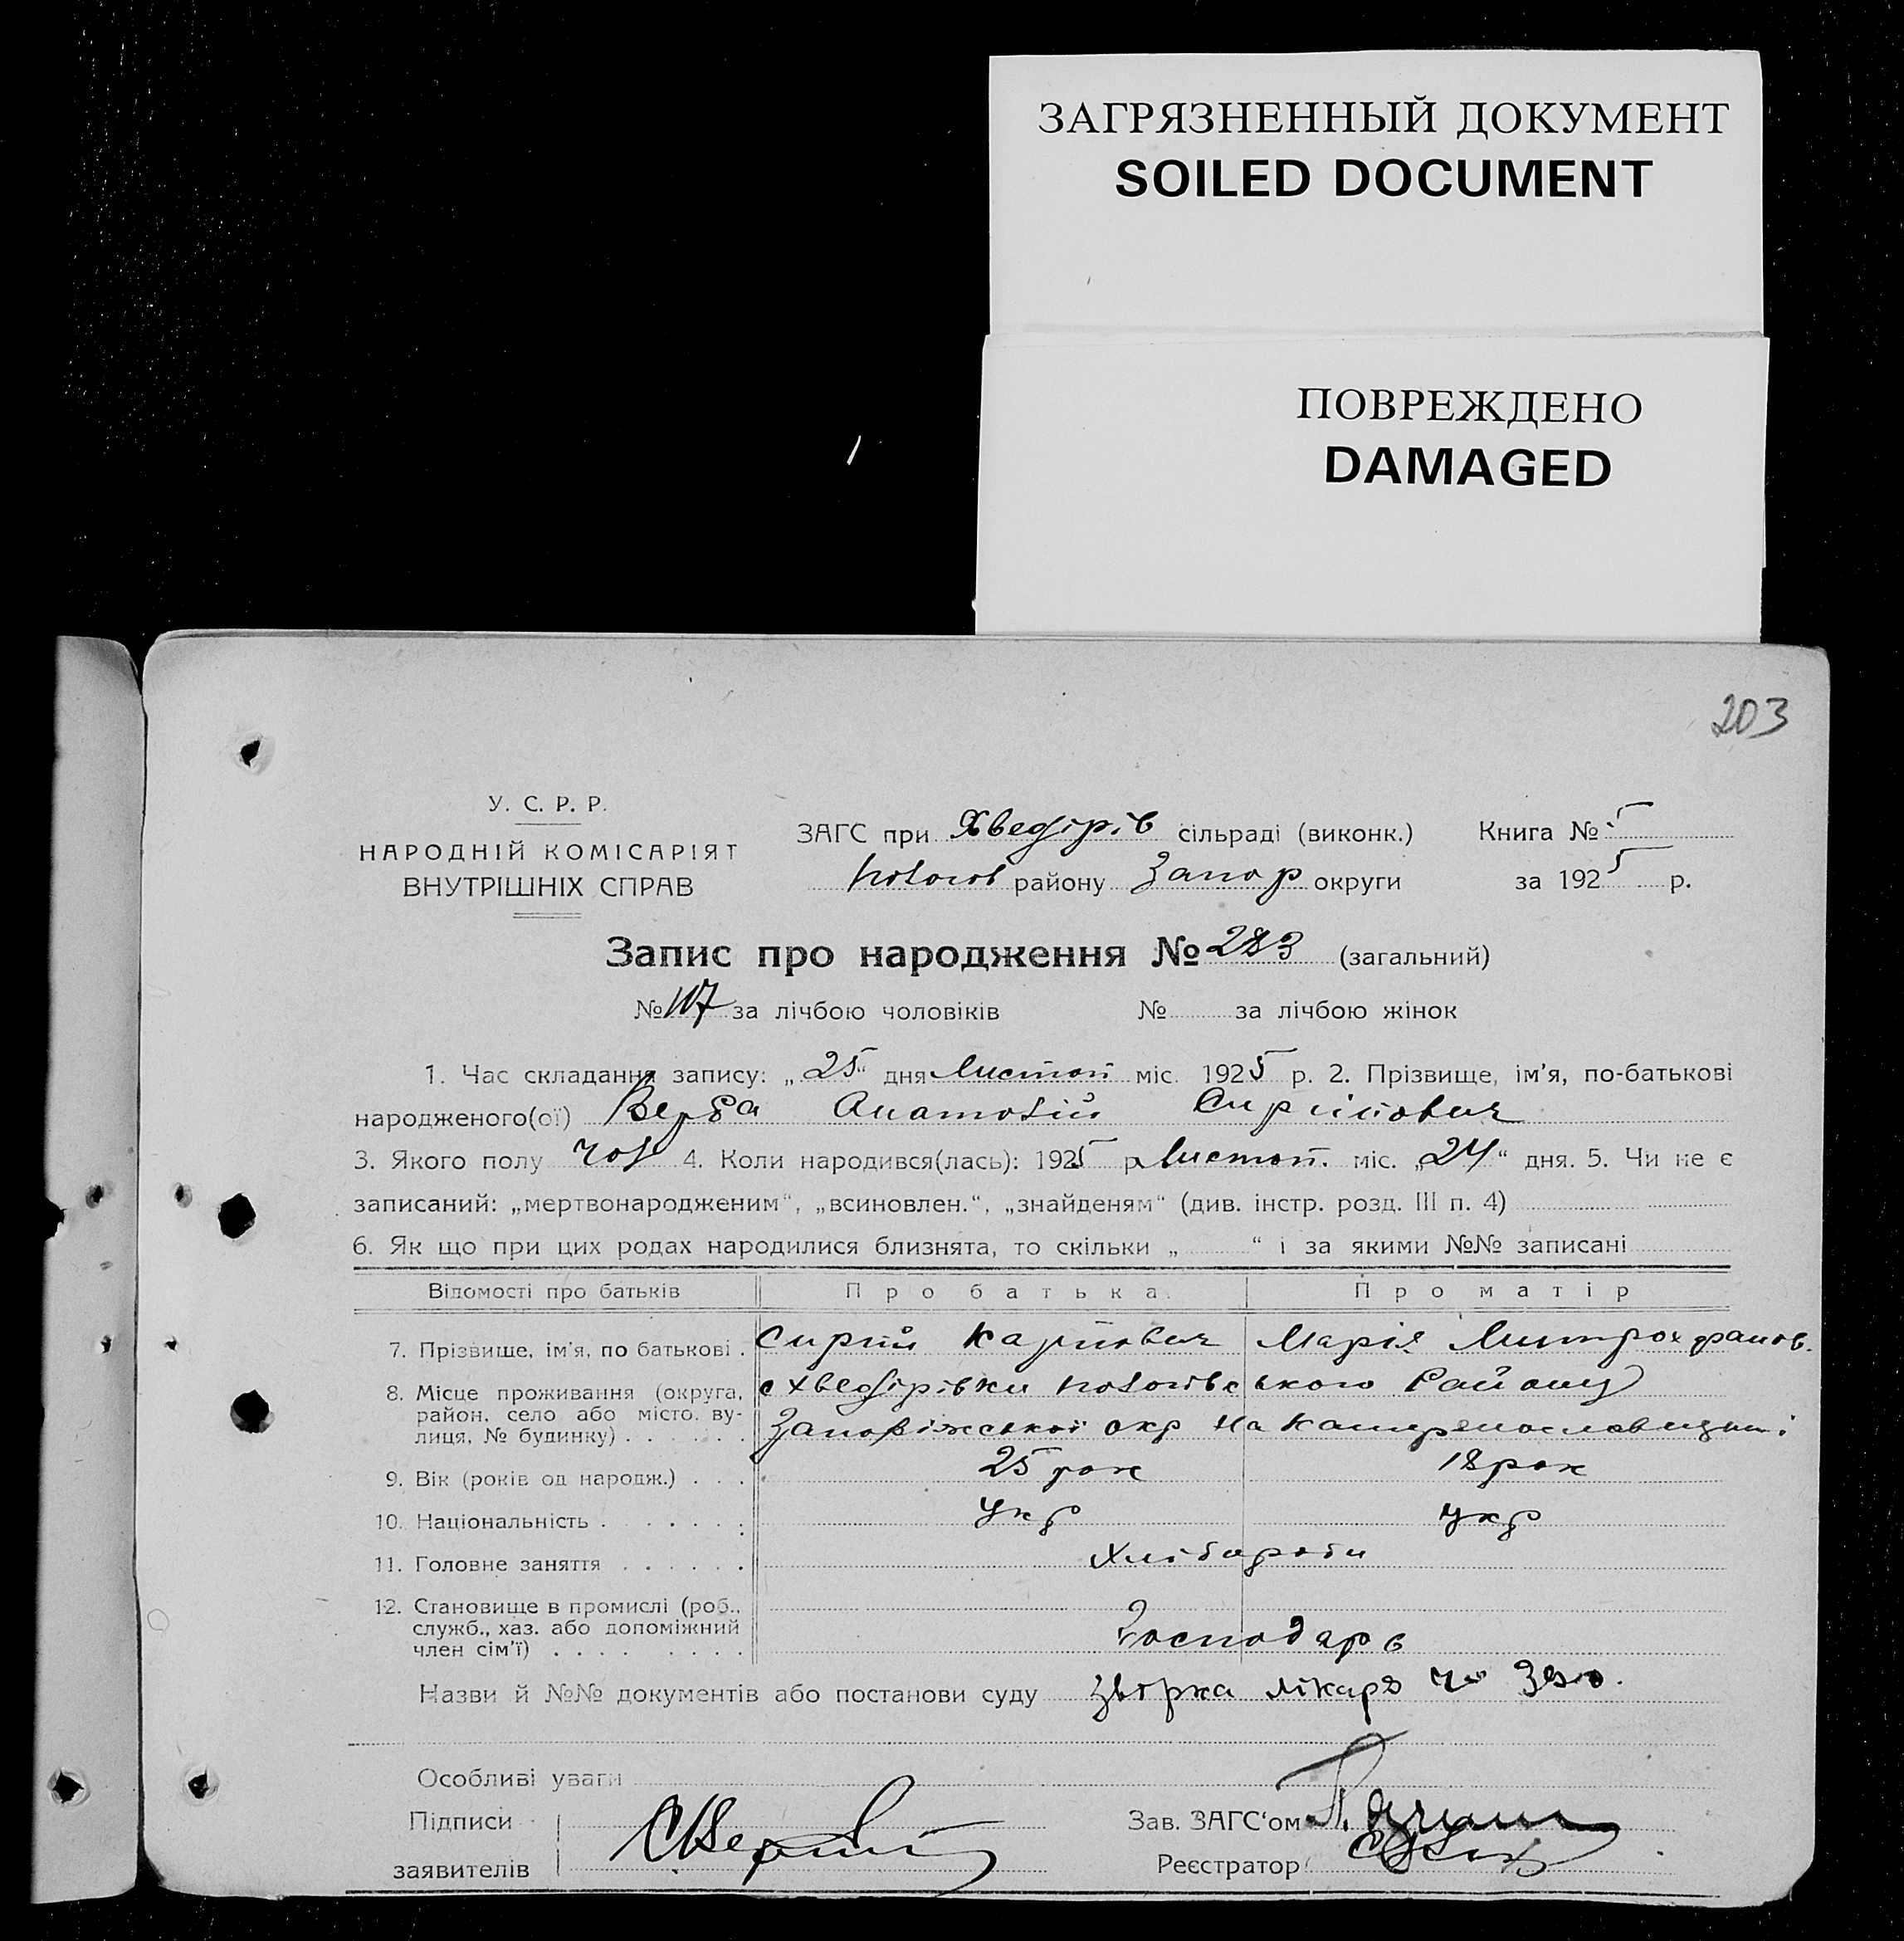 ЗАГРЯЗНЕННЫЙ ДОКУМЕНТ
SOILED DOCUMENT
ПОВРЕЖДЕНО
DAMAGED
203
У. С. Р. Р.
НАРОДНІЙ КОМІСАРІЯТ
ВНУТРІШНІХ СПРАВ
ЗАГС при Хведірів сільраді (виконк.) Книга № 5
Пологов району Запор округи за 1925 р.
Запис про народження № 283 (загальний)
№ 117 за лічбою чоловіків № за лічбою жінок
1. Час складання запису: „25“ дня Листоп міс. 1925 р. 2. Прізвище, ім'я, по-батькові
народженого(ої) Верба Анатолій Сиріпович
3. Якого полу чол 4. Коли народився(лась): 1925 р Листоп. міс. „24“ дня. 5. Чи не є
записаний: „мертвонародженим“, „всиновлен.“, „знайденям“ (див. інстр. розд. III п. 4)
6. Як що при цих родах народилися близнята, то скільки „ “ і за якими №№ записані
Відомості про батьків Про батька. Про матір
7. Прізвище, ім'я, по батькові . Карпович Марія Митрохфанов.
8. Місце проживання (округа, с Хведірівки Пологівського Району
район, село або місто, ву-
лиця, № будинку) . . . . . . Запоріжської окр на Катеринославщині
9. Вік (років од народж.) . . . 25 рок 18 рок
10. Національність . . . . . . Укр укр
11. Головне заняття . . . . . . Хлібароби
12. Становище в промислі (роб.,
служб., хаз. або допоміжний
член сім'ї) . . . . . . . . Господарь
Назви й №№ документів або постанови суду лікаря
Особливі уваги
Підписи
заявителів
Зав. ЗАГС'ом
Реєстратор